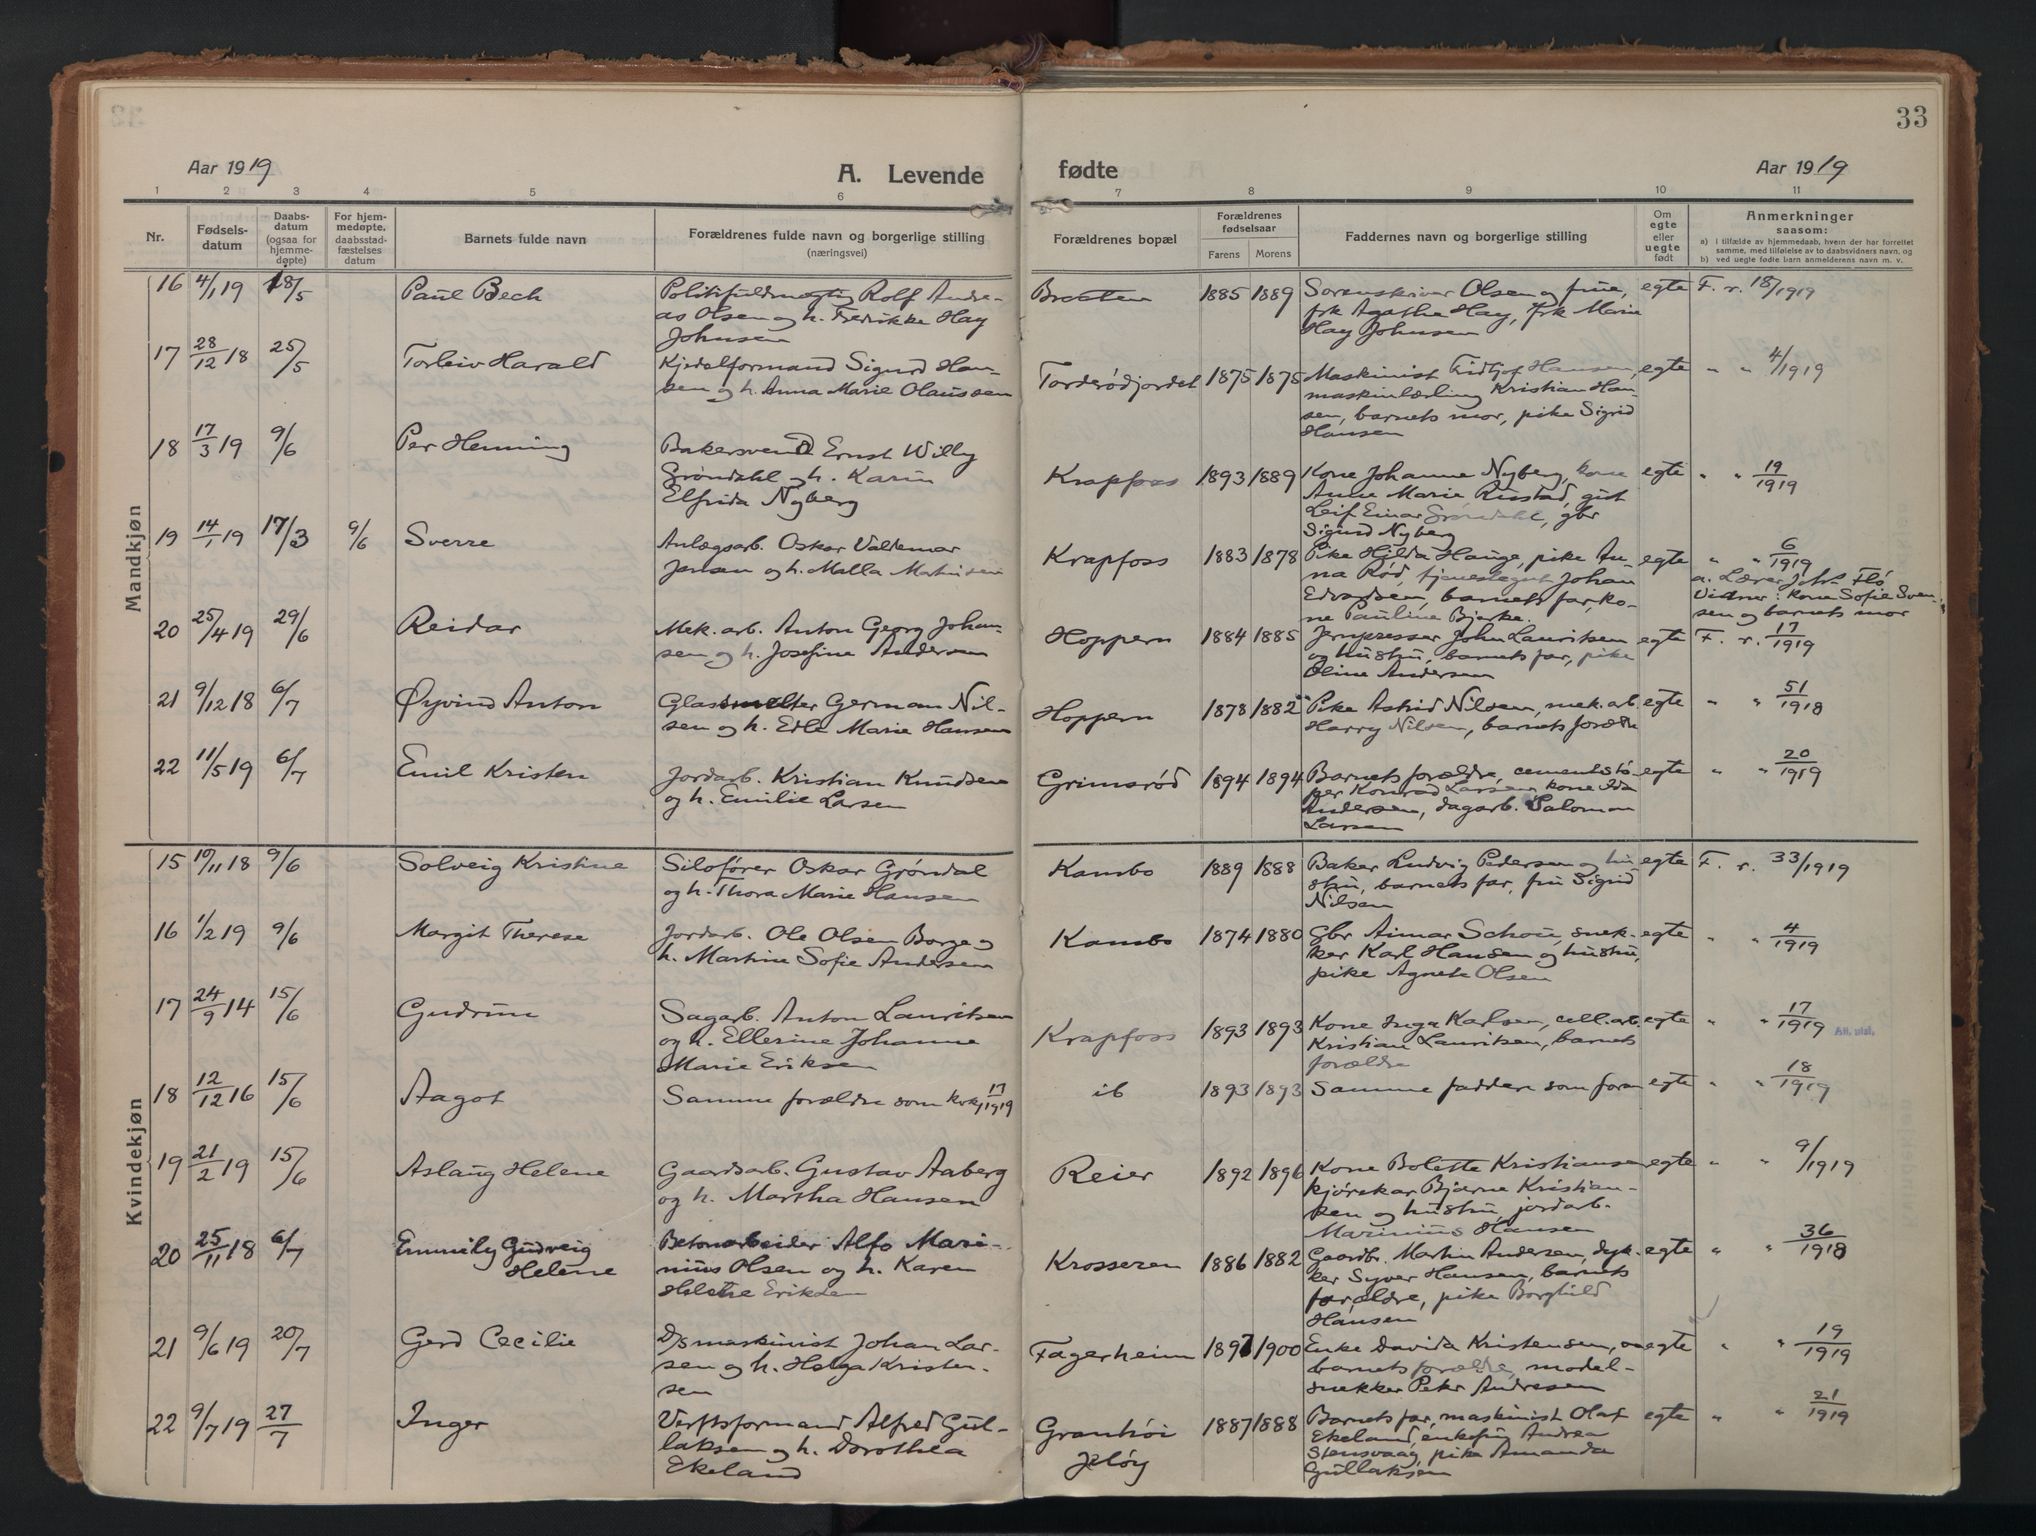 33
Aar 1919 A. Levende fødte Aar 1919
1 2 3 4 5 6 7 8 9 10 11
Nr. Fødsels-datum Daabs-datum (ogsaa for hjemme-døpte) For hjem-medøpte, daabsstad-fæstelses datum Barnets fulde navn Forældrenes fulde navn og borgerlige stilling (næringsvei) Forældrenes bopæl Forældrenes fødselsaar Farens Morens Faddernes navn og borgerlige stilling Om egte eller uegte født Anmerkninger saasom:
a) i tilfælde av hjemmedaab, hvem der har forrettet samme, med tilføielse av to daabsvidners navn, og
b) ved uegte fødte barn anmelderens navn m. v.
Mandkjøn
16 4/1 19 18/5 Paul Bech Politifuldmægtig Rolf Andre- 1885 1889 Sorenskriver Olsen og frue, egte F. r. 18/1919
as Olsen og h. Fredrikke Hay frk Agathe Hay, frk Marie
Johnsen Hay Johnsen
17 28/12 18 25/5 Torleiv Harald Kjedelformand Sigurd Han- Torderødjordet 1875 1875 Maskinist Fridtjof Hansen, egte " " 4/1919
sen og h. Anna Marie Olaussen maskinlærling Kristian Han-
sen, barnets mor, pike Sigrid
Hansen
18 17/3 19 9/6 Per Henning Bakersvend Ernst Willy Krapfoss 1893 1889 Kone Johanne Nyberg, kone egte " " 19/1919
Grøndahl og h. Karin Anne Marie Rustad, gut
Elfrida Nyberg Leif Einar Grøndahl, gbr
Sigurd Nyberg
19 14/1 19 17/3 9/6 Sverre Anlægsarb. Oskar Valdemar Krapfoss 1883 1878 Pike Hilda Hauge, pike An- egte " " 6/1919
Jensen og h. Malla Mathisen na Rød, tjenestegut Johan a. Lærer Joh. Flö
Edvardsen, barnets far, ko- Vidner: kone Sofie Sven-
ne Pauline Bjerke. sen og barnets mor
20 25/4 19 29/6 Reidar Mek. arb. Anton Georg Johan- Hoppern 1884 1885 Jernpresser John Lauritsen egte F. r. 17/1919
sen og h. Josefine Andersen og hustru, barnets far, pike
Oline Andersen
21 9/12 18 6/7 Øyvind Anton Glassmelter German Nil- Hoppern 1878 1882 Pike Astrid Nilsen, mek. arb. egte " " 51/1918
sen og h. Edle Marie Hansen Harry Nilsen, barnets forældre
22 11/5 19 6/7 Emil Kristen Jordarb. Kristian Knudsen Grimsrød 1894 1894 Barnets forældre, cementstø- egte " " 20/1919
og h. Emilie Larsen per Konrad Larsen, kone Ida
Andersen, dagarb. Salomon
Larsen
Kvindekjøn
15 10/11 18 9/6 Solveig Kristine Silofører Oskar Grøndal Kambo 1889 1888 Baker Ludvig Pedersen og hu- egte F. r. 33/1919
og h. Thora Marie Hansen stru, barnets far, fru Sigrid
Nilsen
16 1/2 19 9/6 Margit Therese Jordarb. Ole Olsen Borge og Kambo 1874 1880 Gbr Aimar Schou, snek- egte " " 4/1919
h. Martine Sofie Andersen ker Karl Hansen og hustru,
pike Agnete Olsen
17 24/9 14 15/6 Gudrun Sagarb. Anton Lauritsen Krapfoss 1893 1893 Kone Inga Karlsen, cell. arb. egte " " 17/1919 Att. utst.
og h. Ellerine Johanne Kristian Lauritsen, barnets
Marie Eriksen forældre
18 12/12 16 15/6 Aagot Samme forældre som kvkj 17/1919 ib 1893 1893 Samme faddere som foran egte " " 18/1919
19 21/2 19 15/6 Aslaug Helene Gaardsarb. Gustav Aaberg Reier 1892 1896 Kone Bolette Kristiansen egte " " 9/1919
og h. Martha Hansen kjørekar Bjarne Kristian-
sen og hustru, jordarb.
Marinius Hansen
20 25/11 18 6/7 Emmily Gudveig Betonarbeider Alfo Mari- Krosseren 1886 1882 Gaardbr. Martin Andersen, dyk- egte " " 36/1918
Helene nius Olsen og h. Karen ker Syver Hansen, barnets
Helene Eriksen forældre, pike Borghild
Hansen
21 9/6 19 20/7 Gerd Cecilie D/s maskinist Johan Lar- Fagerheim 1897 1900 Enke Davida Kristensen, egte " " 19/1919
sen og h. Helga Kristen- barnets forældre, model-
sen snekker Peter Andresen
22 9/7 19 27/7 Inger Verftsformand Alfred Gul- Granhøi 1887 1888 Barnets far, maskinist Olaf egte " " 21/1919
laksen og h. Dorothea Jeløy Ekeland, enkefru Andrea
Ekeland Stensvaag, pike Amanda
Gullaksen